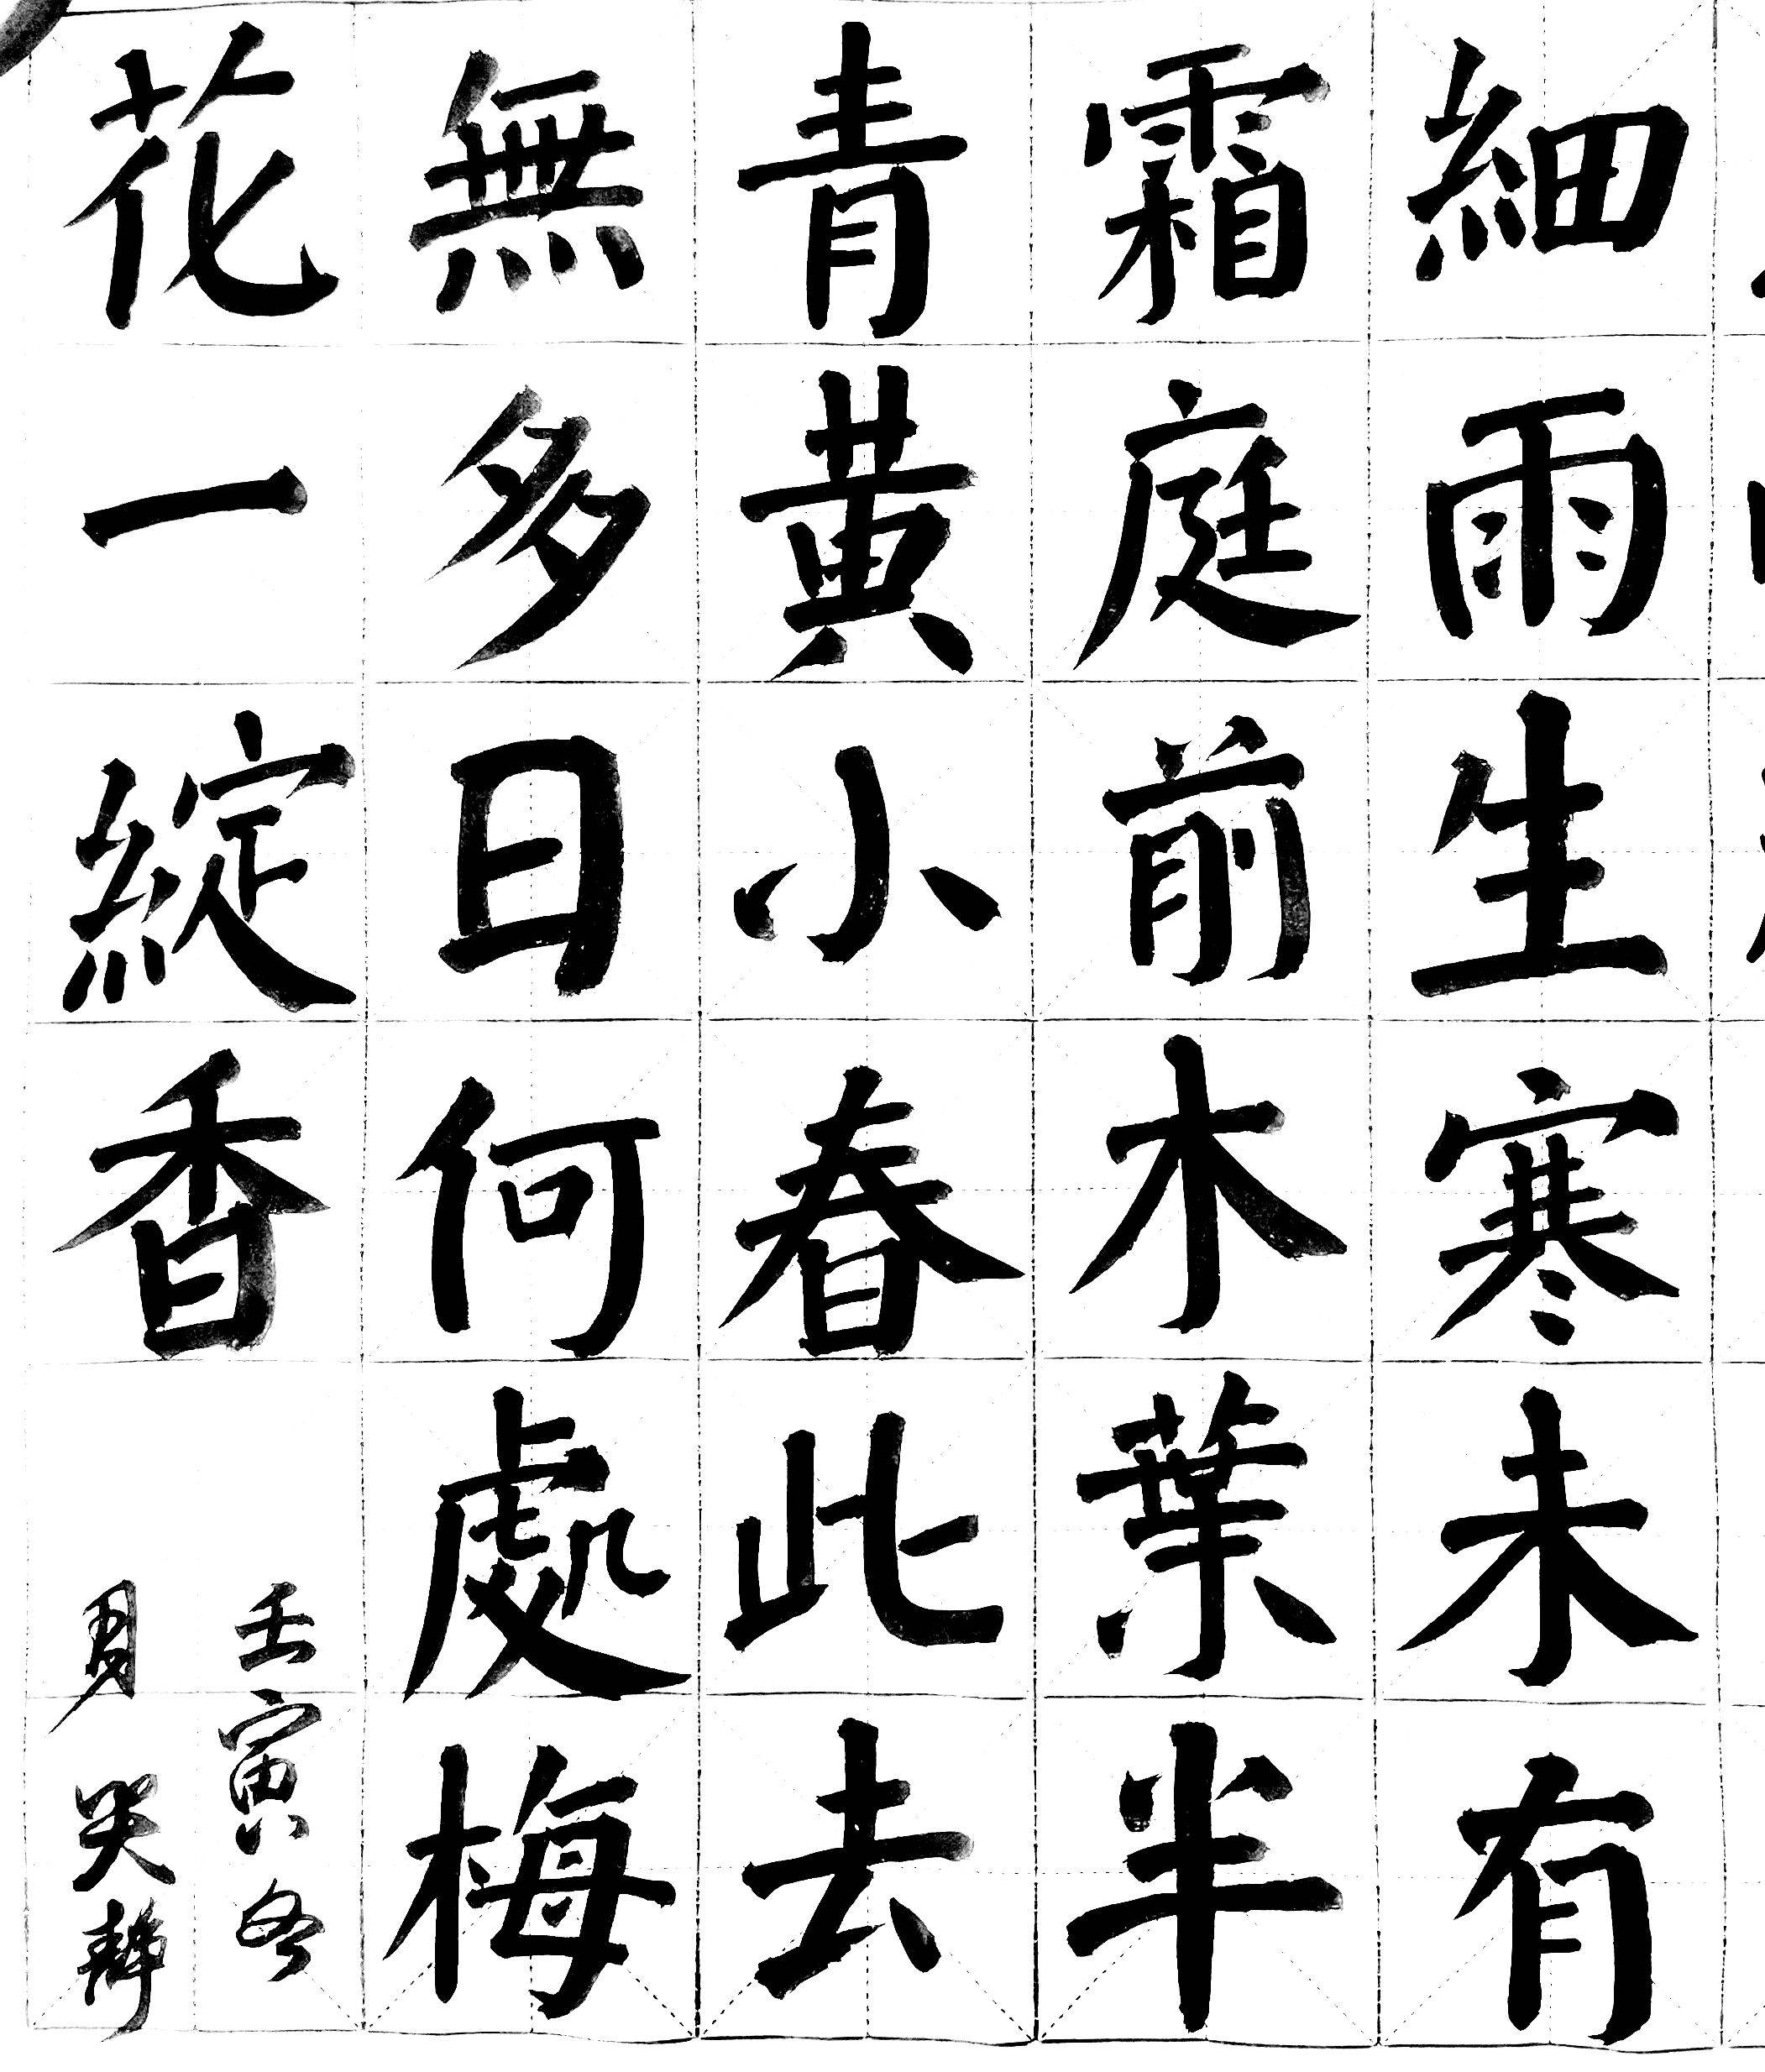 細雨生寒未有
霜庭前木葉半
青黃小春此去
無多日何處梅
花一綻香
壬寅冬
周